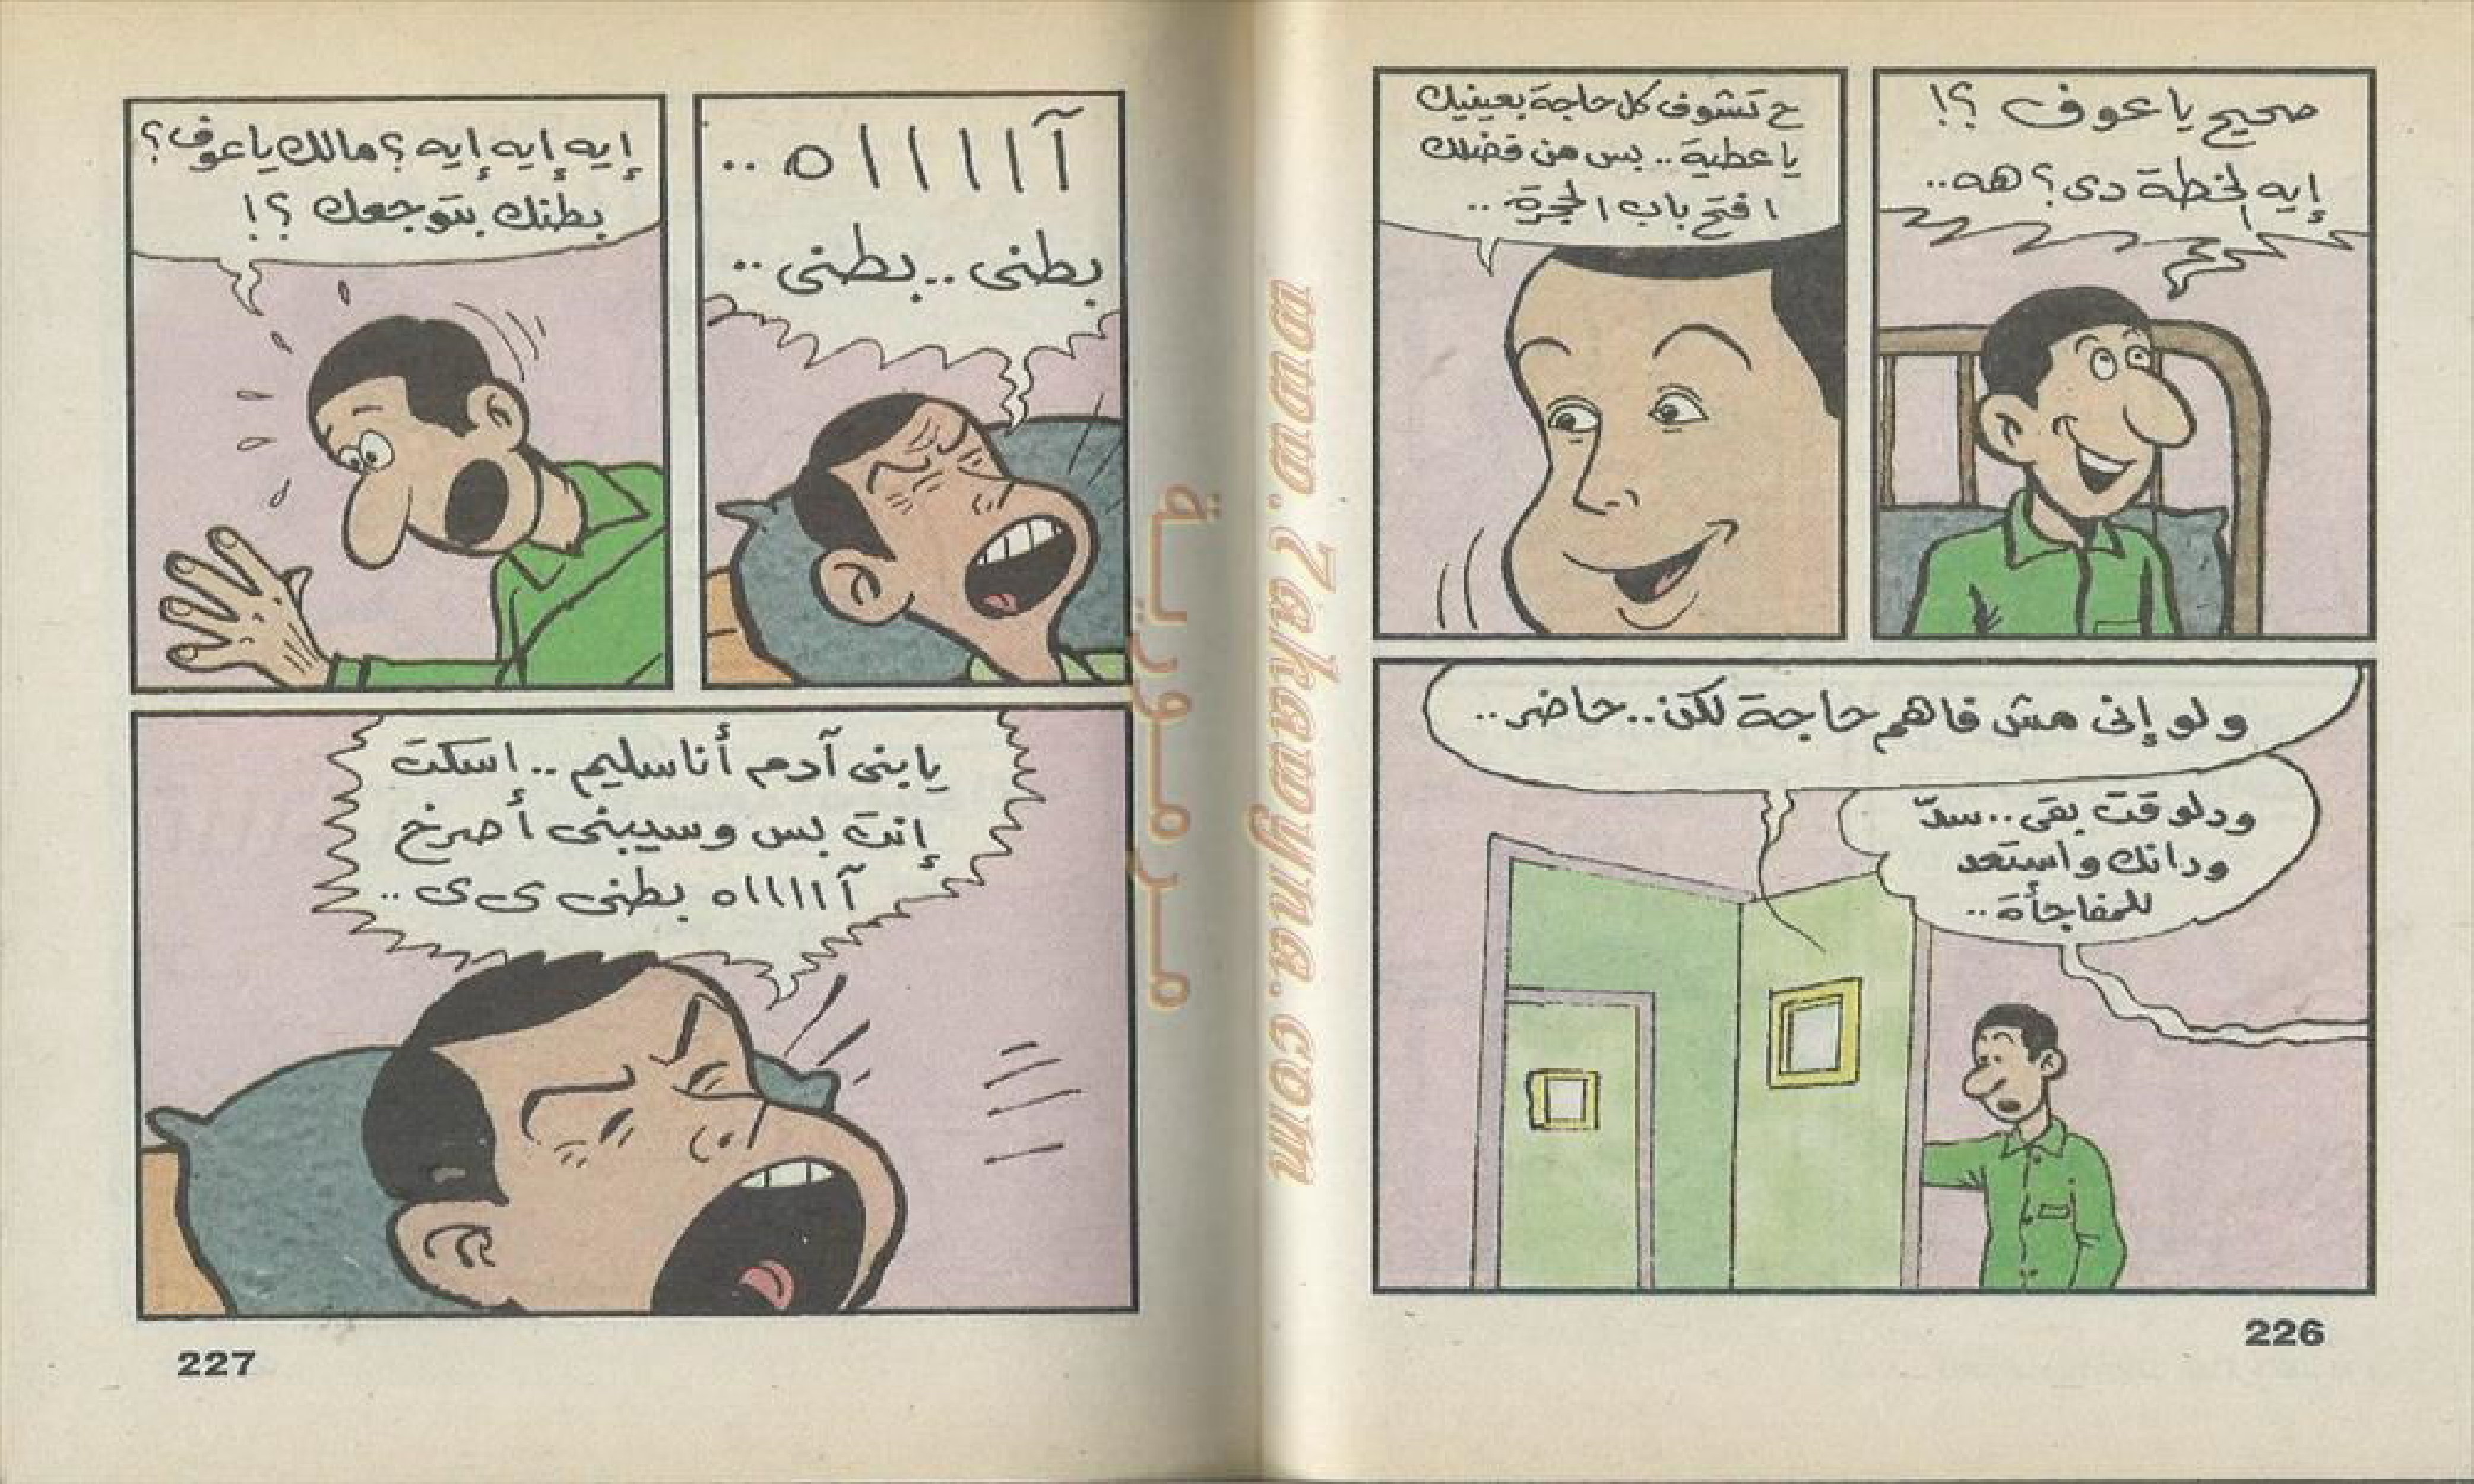 صحيح يا عوف ؟!
إيه الخطة دى ؟ هه..
ح تشوف كل حاجة بعينيك
يا عطية .. بس من فضلك
افتح باب الحجرة ..
ولو إنى مش فاهم حاجة لكن.. حاضر..
ودلوقت بقى.. سدّ
ودانك واستعد
للمفاجأة ..
226
آااااااه ..
بطنى .. بطنى ..
إيه إيه إيه ؟ مالك يا عوف ؟
بطنك بتوجعك ؟!
يا بنى آدم أنا سليم .. اسكت
إنت بس وسيبنى أصرخ
آاااااه بطنى ى ى ..
227
www.Zakawyna.com
مرمورية